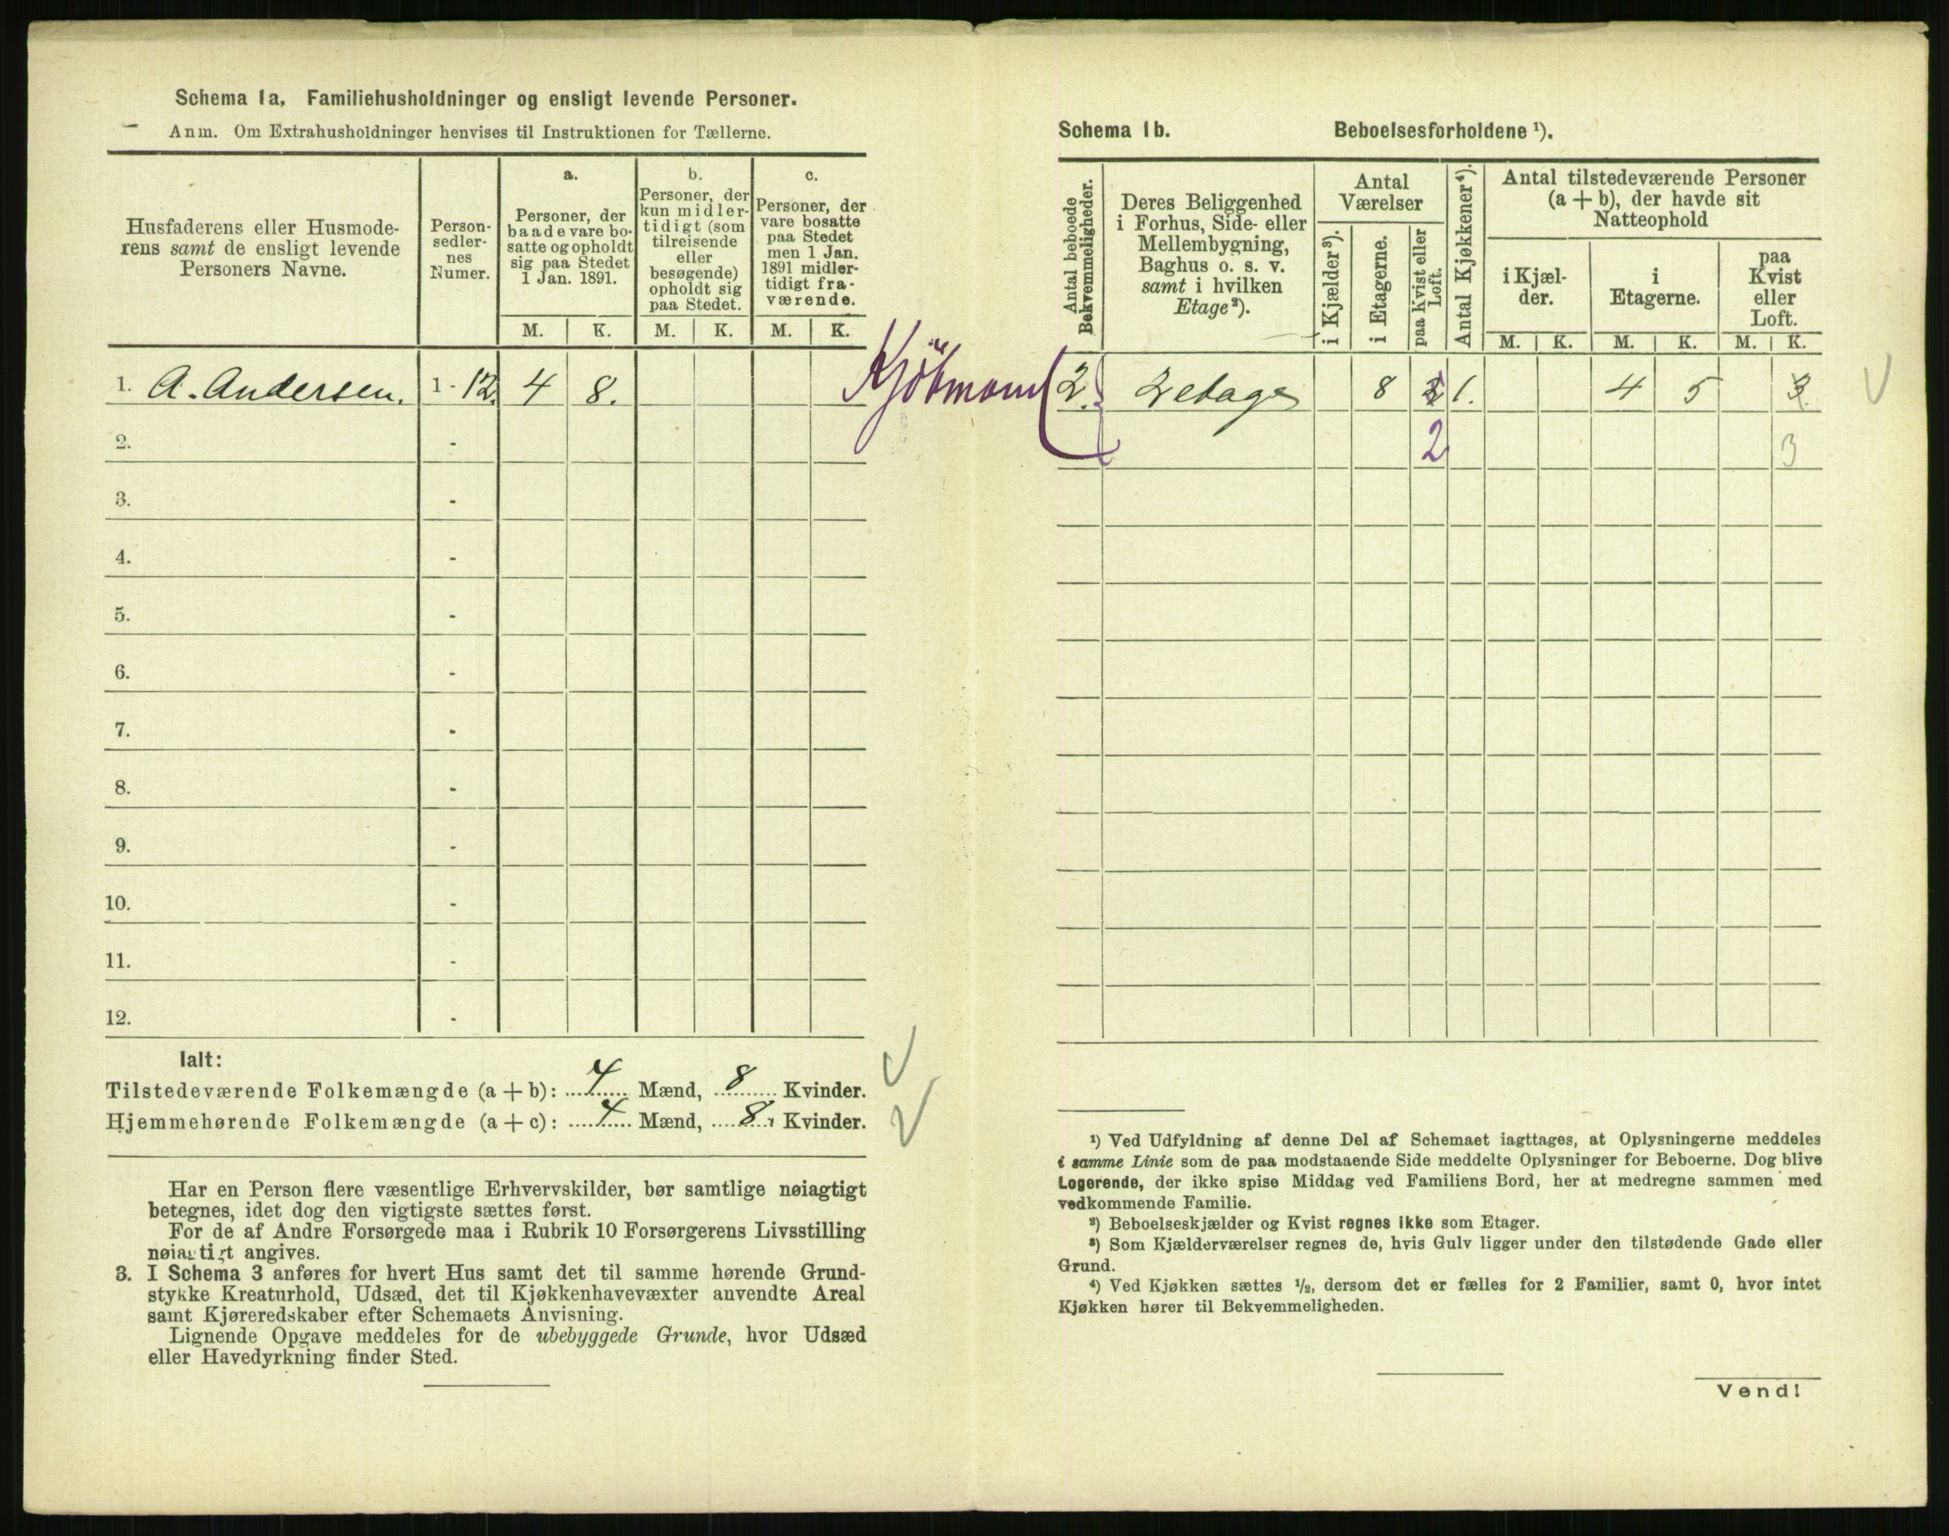 Schema 1a. Familiehusholdninger og ensligt levende Personer.
Anm. Om Extrahusholdninger henvises til Instruktionen for Tællerne.
Husfaderens eller Husmoderens samt de ensligt levende Personers Navne.
Personsedlernes Numer.
a.
Personer, der baade vare bosatte og opholdt sig paa Stedet 1 Jan. 1891.
b.
Personer, der kun midlertidigt (som tilreisende eller besøgende) opholdt sig paa Stedet.
c.
Personer, der vare bosatte paa Stedet men 1 Jan. 1891 midlertidigt fraværende.
M. K. M. K. M. K.
1. A. Andersen. 1 - 12. 4 8.
2. -
3. -
4. -
5. -
6. -
7. -
8. -
9. -
10. -
11. -
12. -
Ialt:
Tilstedeværende Folkemængde (a + b): 4 Mænd, 8 Kvinder.
Hjemmehørende Folkemængde (a + c): 4 Mænd, 8 Kvinder.
Har en Person flere væsentlige Erhvervskilder, bør samtlige nøiagtigt
betegnes, idet dog den vigtigste sættes først.
For de af Andre Forsørgede maa i Rubrik 10 Forsørgerens Livsstilling
nøiagtigt angives.
3. I Schema 3 anføres for hvert Hus samt det til samme hørende Grund-
stykke Kreaturhold, Udsæd, det til Kjøkkenhavevæxter anvendte Areal
samt Kjøreredskaber efter Schemaets Anvisning.
Lignende Opgave meddeles for de ubebyggede Grunde, hvor Udsæd
eller Havedyrkning finder Sted.
Schema 1b. Beboelsesforholdene ¹).
Antal beboede Bekvemmeligheder.
Deres Beliggenhed i Forhus, Side- eller Mellembygning, Baghus o. s. v. samt i hvilken Etage²).
Antal Værelser
i Kjælder³).
i Etagerne.
paa Kvist eller Loft.
Antal Kjøkkener⁴).
Antal tilstedeværende Personer (a + b), der havde sit Natteophold
i Kjælder.
i Etagerne.
paa Kvist eller Loft.
M. K. M. K. M. K.
2. 2 etage 8 1. 4 5 3
2 3
¹) Ved Udfyldning af denne Del af Schemaet iagttages, at Oplysningerne meddeles
i samme Linie som de paa modstaaende Side meddelte Oplysninger for Beboerne. Dog blive
Logerende, der ikke spise Middag ved Familiens Bord, her at medregne sammen med
vedkommende Familie.
²) Beboelseskjælder og Kvist regnes ikke som Etager.
³) Som Kjælderværelser regnes de, hvis Gulv ligger under den tilstødende Gade eller
Grund.
⁴) Ved Kjøkken sættes ½, dersom det er fælles for 2 Familier, samt 0, hvor intet
Kjøkken hører til Bekvemmeligheden.
Vend!